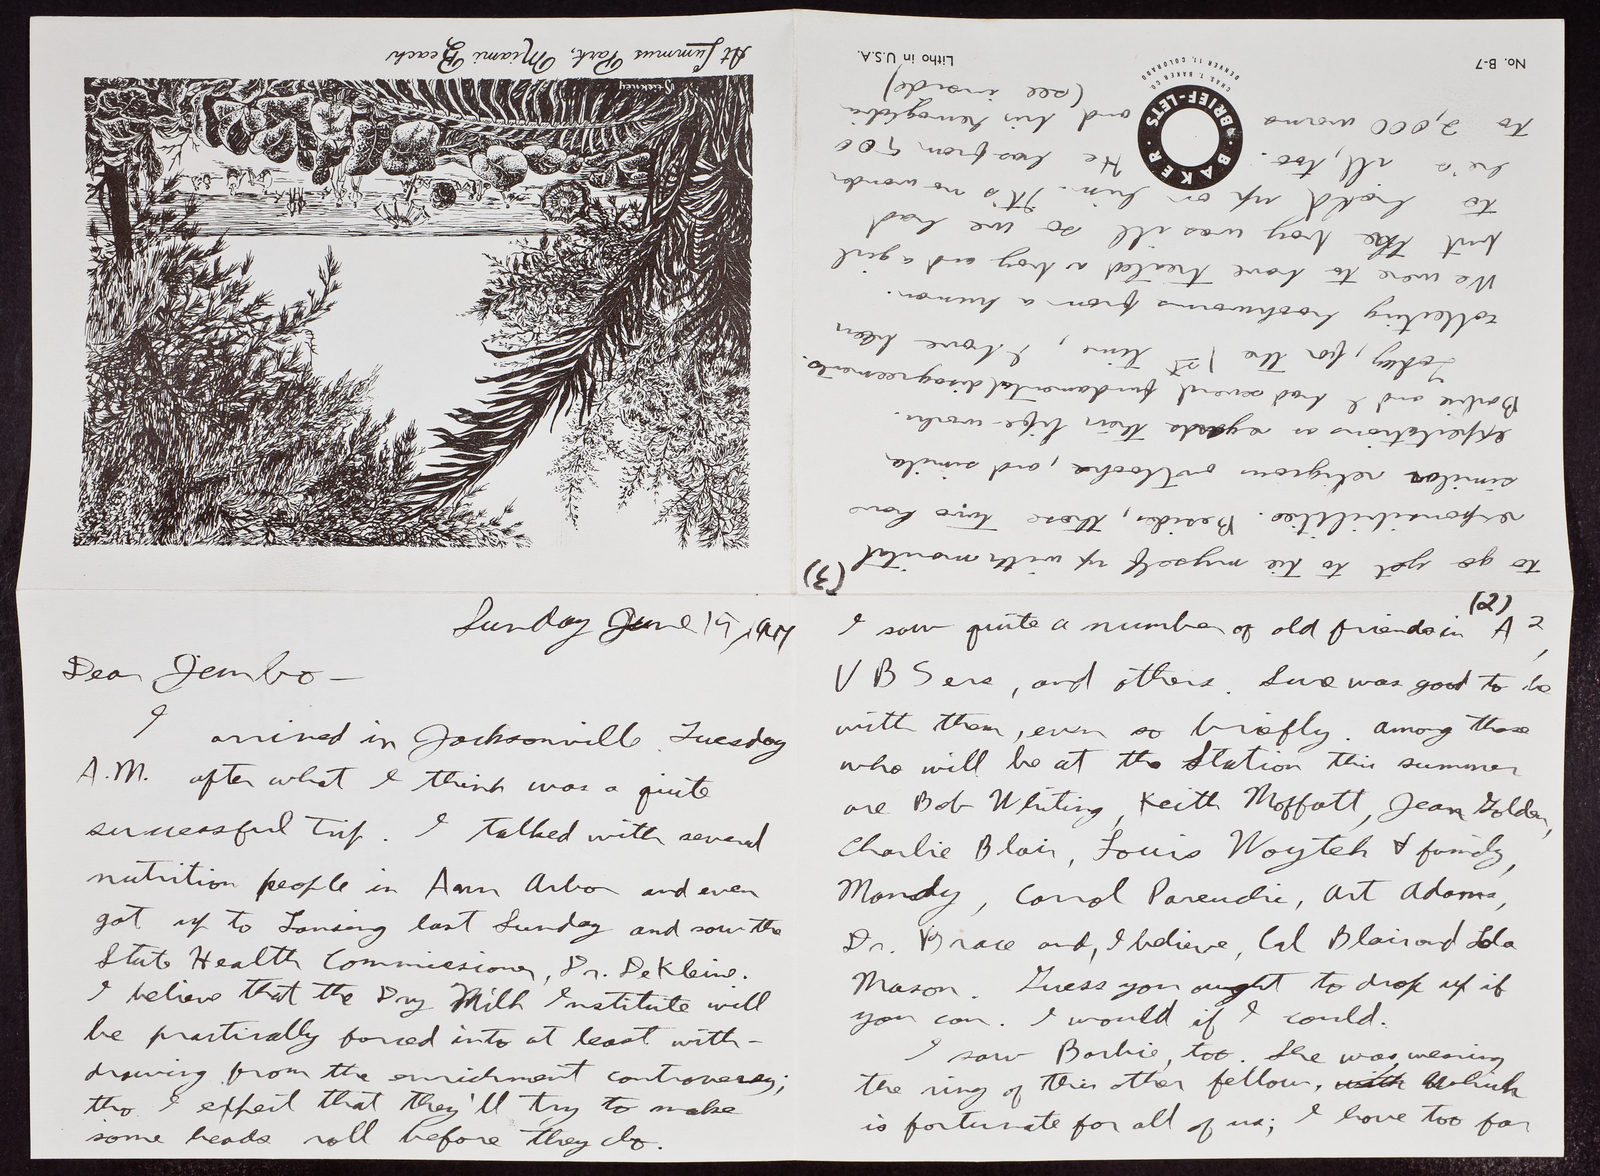 Sunday June 19, 1944
Dear Jembo —
I arrived in Jacksonville Tuesday
A.M. after what I think was a quite
successful trip. I talked with several
nutrition people in Ann Arbor and even
got up to Lansing last Sunday and saw the
State Health Commissioner, Dr. DeKleine.
I believe that the Dry Milk Institute will
be practically forced into at least with-
drawing from the enrichment controversy;
tho I expect that they'll try to make
some heads roll before they do.
(2)
I saw quite a number of old friends in A²,
VBSers, and others. Sure was good to be
with them, even so briefly. Among those
who will be at the Station this summer
are Bob Whiting, Keith Moffatt, Jean Golden,
Charlie Blair, Louis Woytek & family,
Mandy, Carrol, Art Adams,
Dr. Brace and, I believe, Cal Blair and Lola
Mason. Guess you ought to drop up if
you can. I would if I could.
I saw Barbie, too. She was wearing
the ring of this other fellow, which
is fortunate for all of us; I have too far
(3)
to go yet to tie myself up with marital
responsibilities. Besides, those two have
similar religious outlooks, and similar
expectations as regards their life-works.
Barbie and I had several fundamental disagreements.
Today, for the 1st time, I have been
collecting hookworms from a human.
We were to have treated a boy and a girl
but the boy was ill so we had
to hold up on him. It's no wonder
he's ill, too. He has from 900
to 2,000 worms and his hemoglobin
(see inside)
BAKER · BRIEF-LETS
CHAS. T. BAKER CO.
DENVER 11, COLORADO
No. B-7
Litho in U.S.A.
Stickney
At Lummus Park, Miami Beach